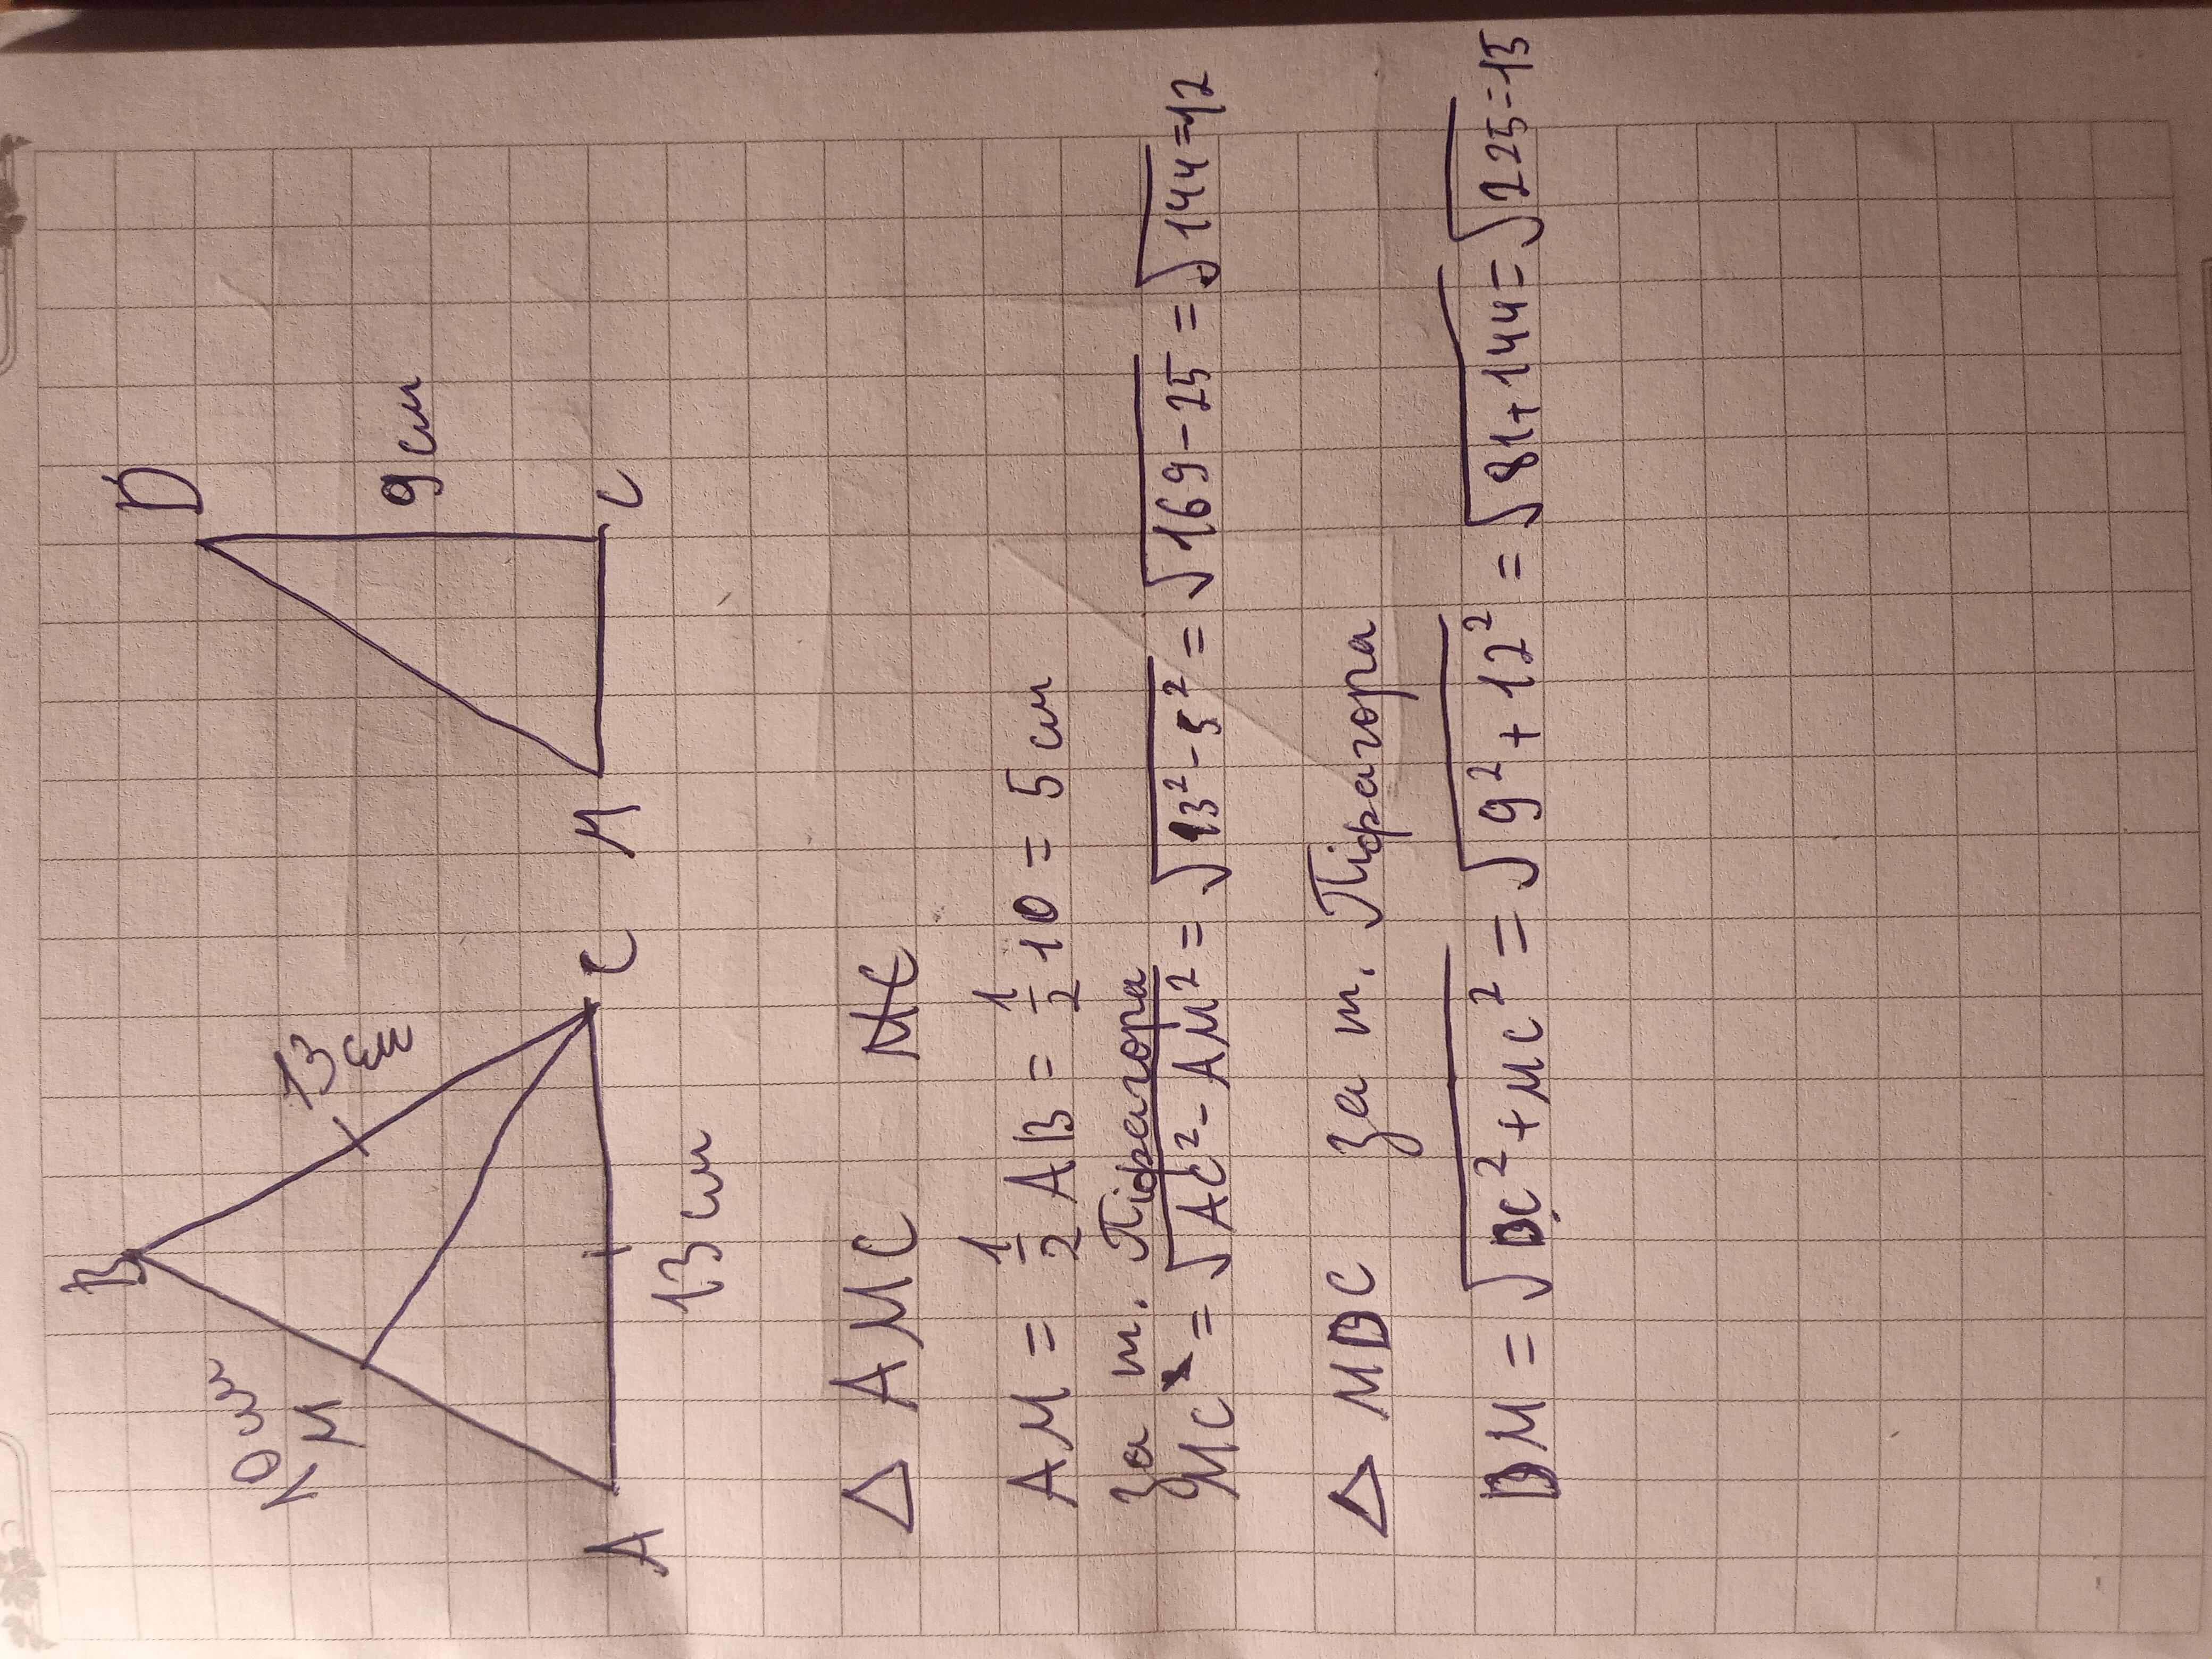 B
D
10 см
M
13 см
9 см
A
C
M
C
13 см
△ AMC
AM = 1/2 AB = 1/2 10 = 5 см
За т. Піфагора
MC = √AC² - AM² = √13² - 5² = √169 - 25 = √144 = 12
△ MDC За т. Піфагора
DM = √DC² + MC² = √9² + 12² = √81 + 144 = √225 = 15